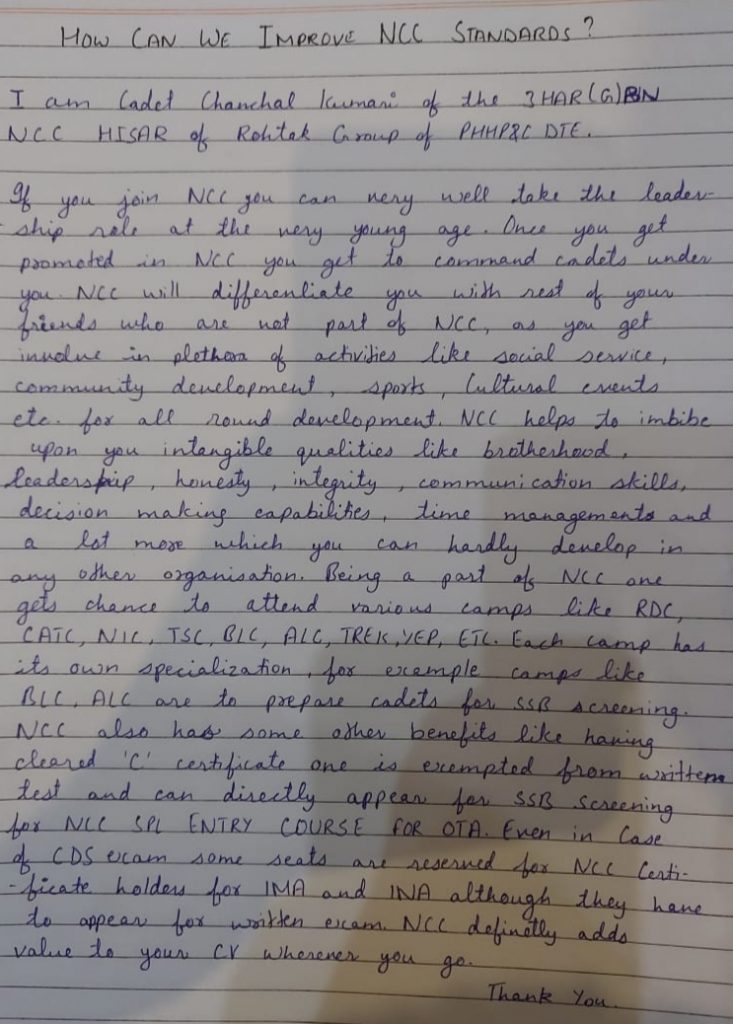 HOW CAN WE IMPROVE NCC STANDARDS?
I am Cadet Chanchal Kumari of the 3 HAR(G)BN
NCC HISAR of Rohtak Group of PHHP&C DTE.
If you join NCC you can very well take the leader-
ship role at the very young age. Once you get
promoted in NCC you get to command cadets under
you. NCC will differentiate you with rest of your
friends who are not part of NCC, as you get
involve in plethora of activities like social service,
community development, sports, Cultural events
etc. for all round development. NCC helps to imbibe
upon you intangible qualities like brotherhood,
leadership, honesty, integrity, communication skills,
decision making capabilities, time managements and
a lot more which you can hardly develop in
any other organisation. Being a part of NCC one
gets chance to attend various camps like RDC,
CATC, NIC, TSC, BLC, ALC, TREK, YEP, ETC. Each camp has
its own specialization, for example camps like
BLC, ALC are to prepare cadets for SSB screening.
NCC also has some other benefits like having
cleared 'C' certificate one is exempted from written
test and can directly appear for SSB screening
for NCC SPL ENTRY COURSE FOR OTA. Even in Case
of CDS exam some seats are reserved for NCC Certi-
-ficate holders for IMA and INA although they have
to appear for written exam. NCC definetly adds
value to your CV wherever you go.
Thank You.